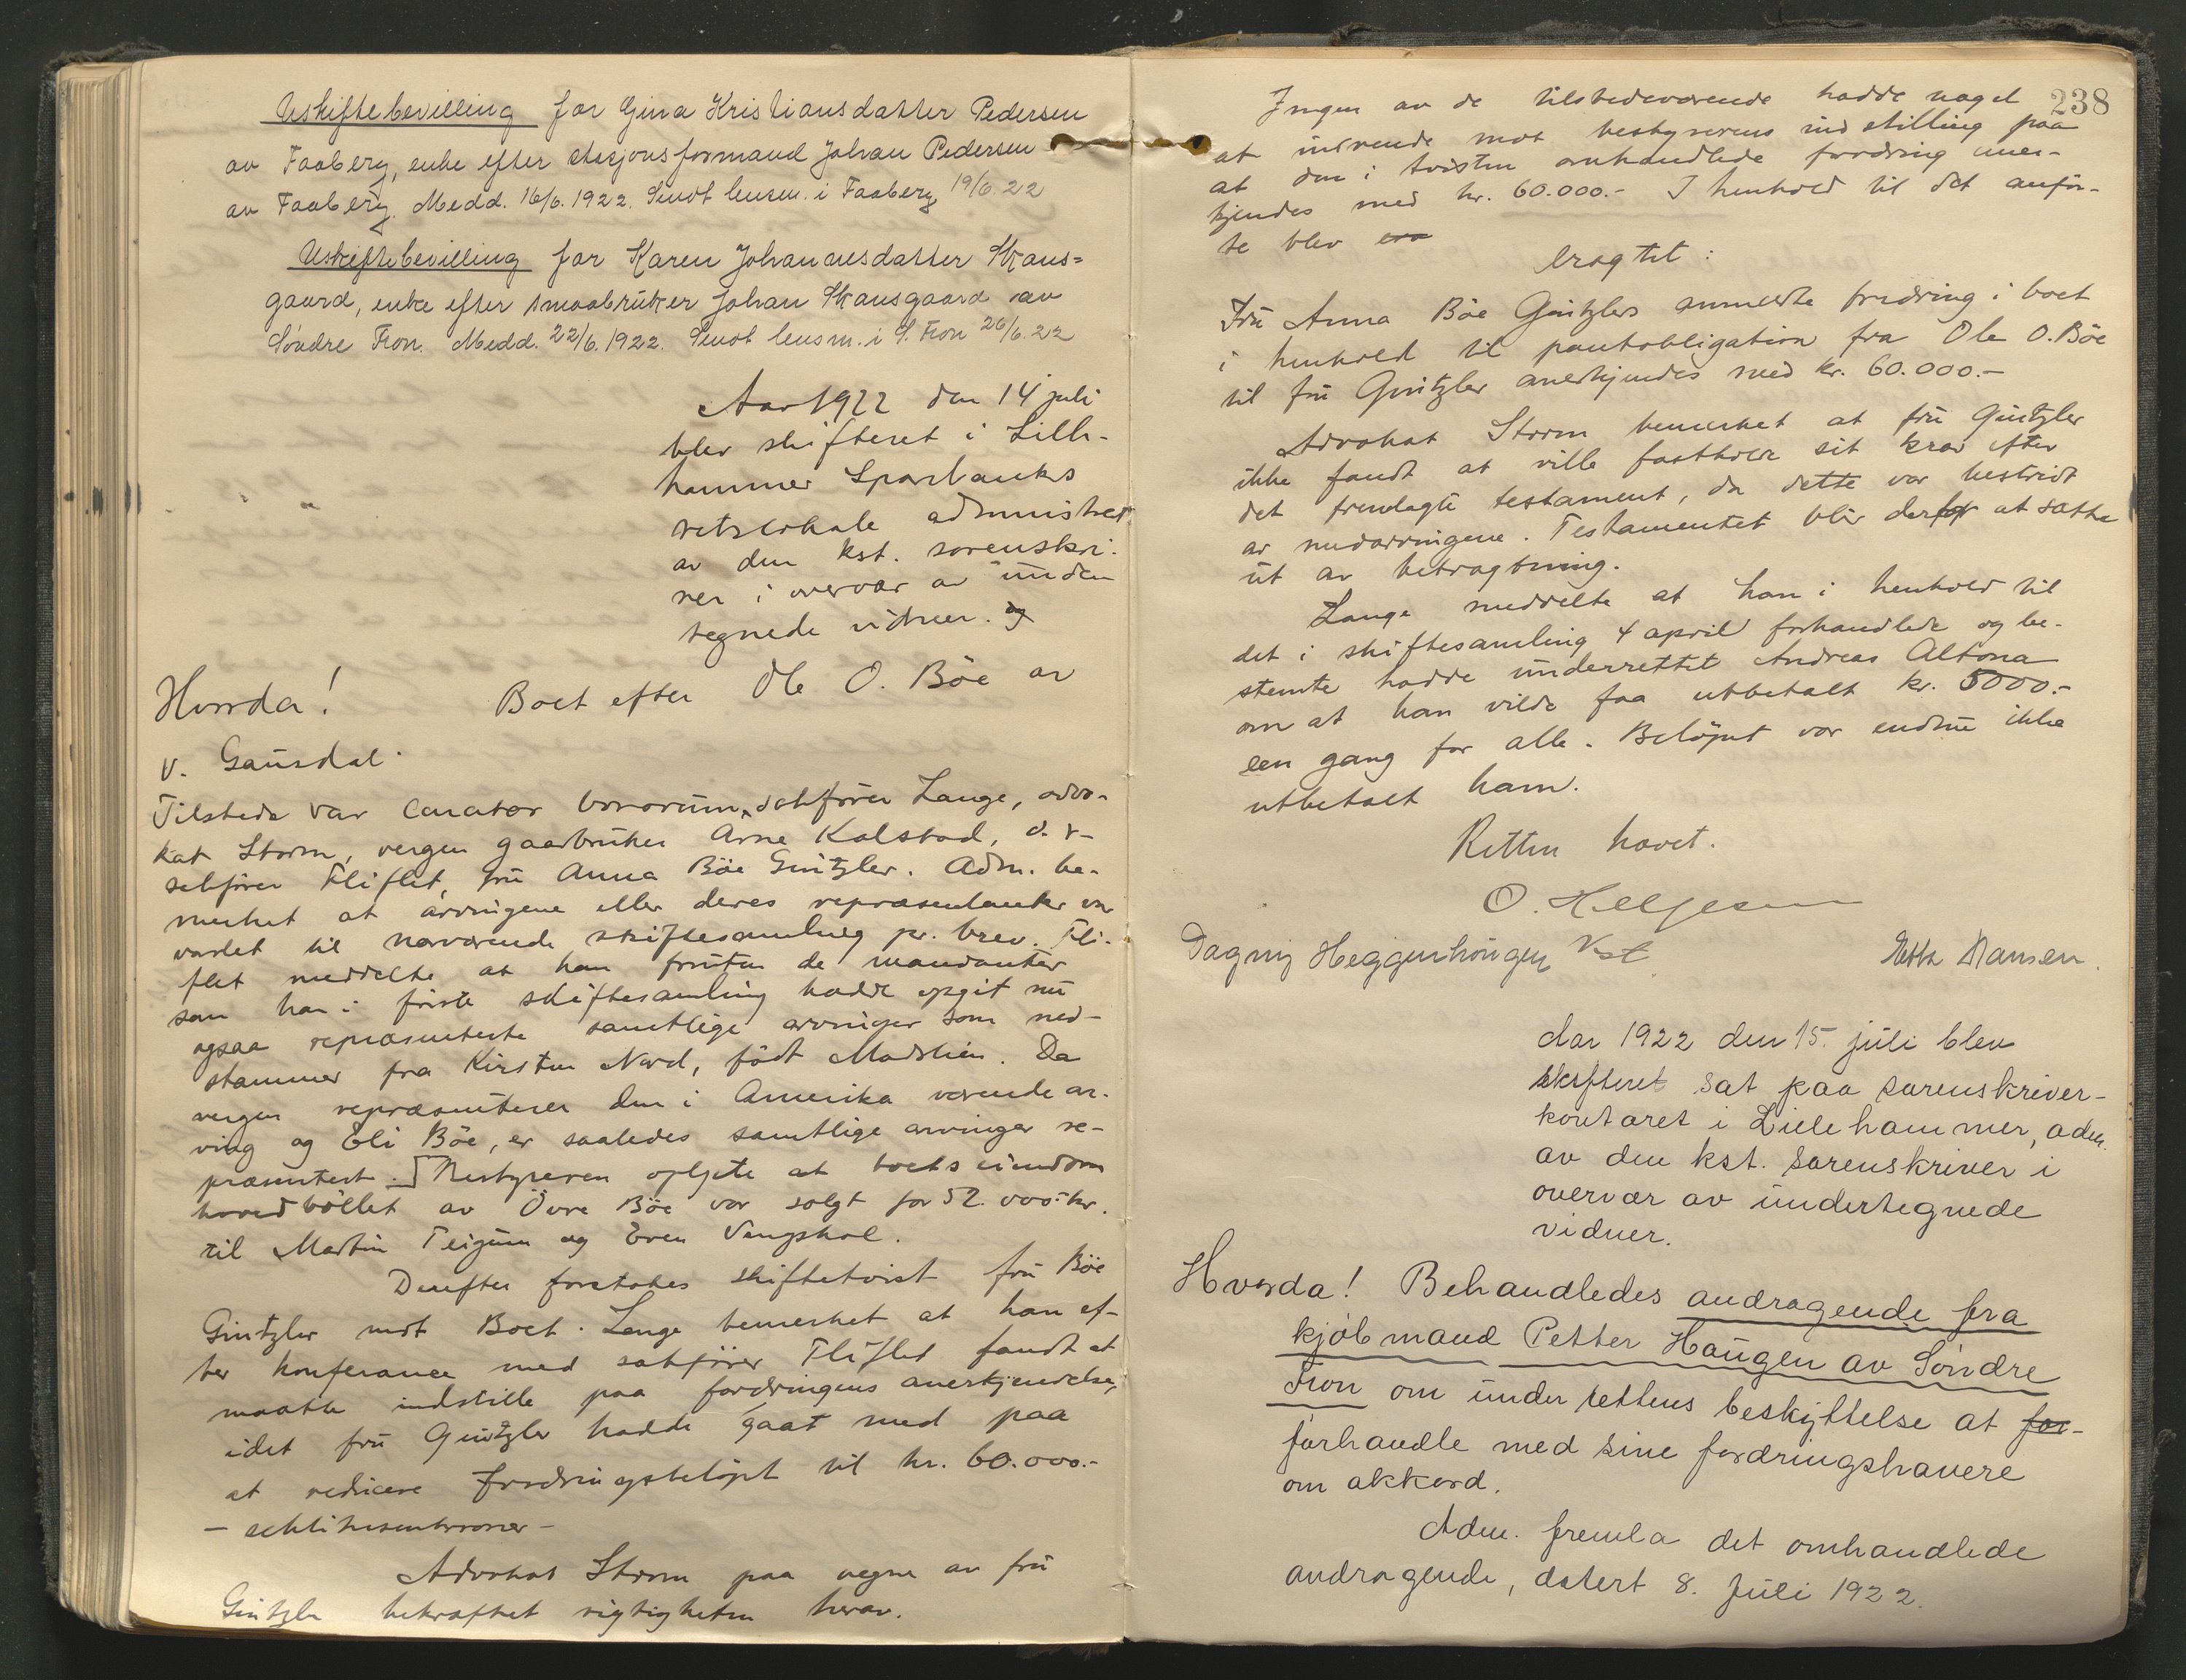 Uskiftebevilling for Gina Kristiansdatter Pedersen
av Faaberg, enke efter stasjonsformand Johan Pedersen
av Faaberg. Medd. 16/6. 1922. Sendt lensm. i Faaberg 19/6.22
Uskiftebevilling for Karen Johannesdatter Skans=
gaard, enke efter smaabruker Johan Skansgaard av
Söndre Fron. Medd. 22/6. 1922. Sendt lensm. i S. Fron 26/6.22
Aar 1922 den 14 juli
blev skifteret i Lille-
hammer Sparbanks
retslokale administrert
av den kst. sorenskri-
ver i overvær av under
tegnede vidner. og
Hvorda! Boet efter Ole O. Böe av
V. Gausdal.
Tilstede var curator bonorum, sakfører Lange, advo-
kat Storm, vergen gaardbruker Arne Kalstad, o.r-
sakfører Fliflet, fru Anna Böe Guitzler. Adm. be-
merket at arvingene eller deres repræsentanter var
varslet til nærværende skiftesamling pr. brev. Fli-
flet meddelte at han foruten de mandanter
som han i første skiftesamling hadde opgit nu
ogsaa repræsenterte samtlige arvinger som ned-
stammer fra Kirsten Nord, født Madslien. Da
vergen repræsenterer den i Amerika værende ar-
ving og Eli Böe, er saaledes samtlige arvinger re-
præsentert. Bestyreren oplyste at boets eiendom
hovedbøllet av Övre Böe var solgt for 52.000 kr.
til Martin Teigum og Even
Derefter foretokes skiftetvist fru Böe
Guitzler mot Boet. Lange bemerket at han ef-
ter konferance med sakfører Fliflet fandt at
maatte indstille paa fordringens anerkjendelse,
idet fru Guitzler hadde gaat med paa
at reducere fordringsbeløpet til kr. 60.000.-
- sekstitusenkroner -
Advokat Storm paa vegne av fru
Guitzler bekræftet rigtigheten herav.
238
Ingen av de tilstedeværende hadde noget
at indvende mot bestyrerens indstilling paa
at den i tvisten omhandlede fordring aner-
kjendes med kr. 60.000.- I henhold til det anfør-
te blev era
eragtet:
Fru Anna Böe Guitzlers anmeldte fordring i boet
i henhold til pantobligation fra Ole O. Böe
til fru Guitzler anerkjendes med kr. 60.000.-
Advokat Storm bemerket at fru Guitzler
ikke fandt at ville fastholde sit krav efter
det fremlagte testament, da dette var bestridt
av medarvingene. Testamentet blir derfor at sætte
ut av betragtning.
Lange meddelte at han i henhold til
det i skiftesamling 4 april forhandlede og be-
stemte hadde underrettet Andreas Altona
om at han vilde faa utbetalt kr. 5000.-
een gang for alle. Beløpet var endnu ikke
utbetalt ham.
Retten hævet.
O. Helgesen
Kst.
Dagny Heggenhougen Hansen.
Aar 1922 den 15. juli blev
skifteret sat paa sorenskriver-
kontoret i Lillehammer, adm.
av den kst. sorenskriver i
overvær av undertegnede
vidner.
Hvorda! Behandledes andragende fra
kjøbmand Petter Haugen av Söndre
Fron om under rettens beskyttelse at for-
forhandle med sine fordringshavere
om akkord.
Adm. fremla det omhandlede
andragende, datert 8. Juli 1922.